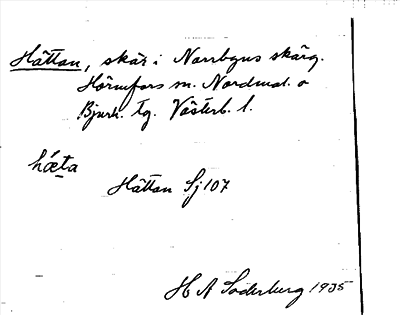 Hättan, skär i Norrbyns skärg.
Hörnefors sn. Nordmal. o
Bjurh. tg. Västerb. l.
hæta
Hättan Sj 107
H A Söderberg 1935